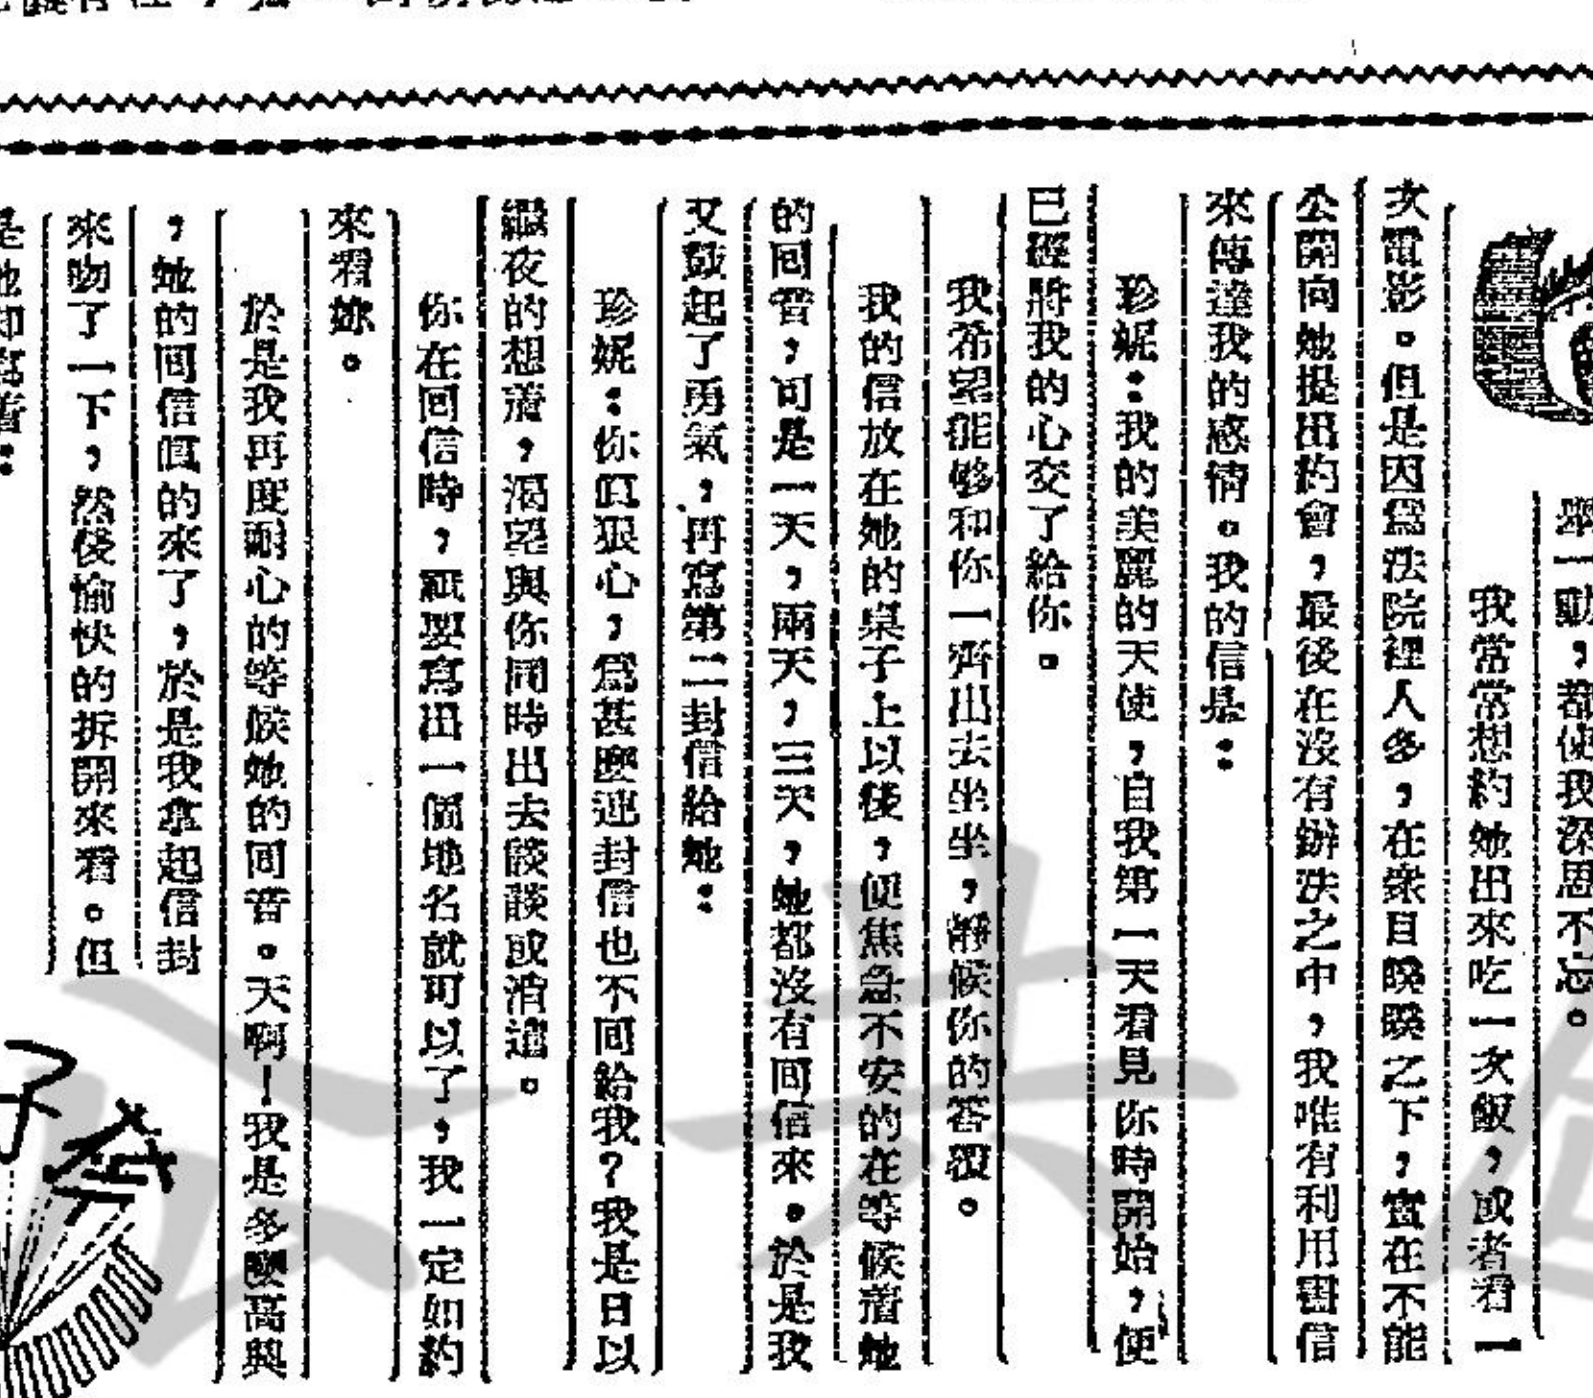 舉一動，都使我深思不忘。
我常常想約她出來吃一次飯，或者看一
次電影。但是因爲法院裡人多，在衆目睽睽之下，實在不能
公開向她提出約會，最後在沒有辦法之中，我唯有利用書信
來傳達我的感情。我的信是：
珍妮：我的美麗的天使，自我第一天看見你時開始，便
已經將我的心交了給你。
我希望能够和你一齊出去坐坐，靜候你的答覆。
我的信放在她的桌子上以後，便焦急不安的在等候着她
的回音，可是一天，兩天，三天，她都沒有回信來。於是我
又鼓起了勇氣，再寫第二封信給她：
珍妮：你眞狠心，爲甚麼連封信也不回給我？我是日以
繼夜的想着，渴望與你同時出去談談或消遣。
你在回信時，祇要寫出一個地名就可以了，我一定如約
來看妳。
於是我再度耐心的等候她的回音。天啊！我是多麼高興
，她的回信眞的來了，於是我拿起信封
來吻了一下，然後愉快的拆開來看。但
是她却寫着：
子